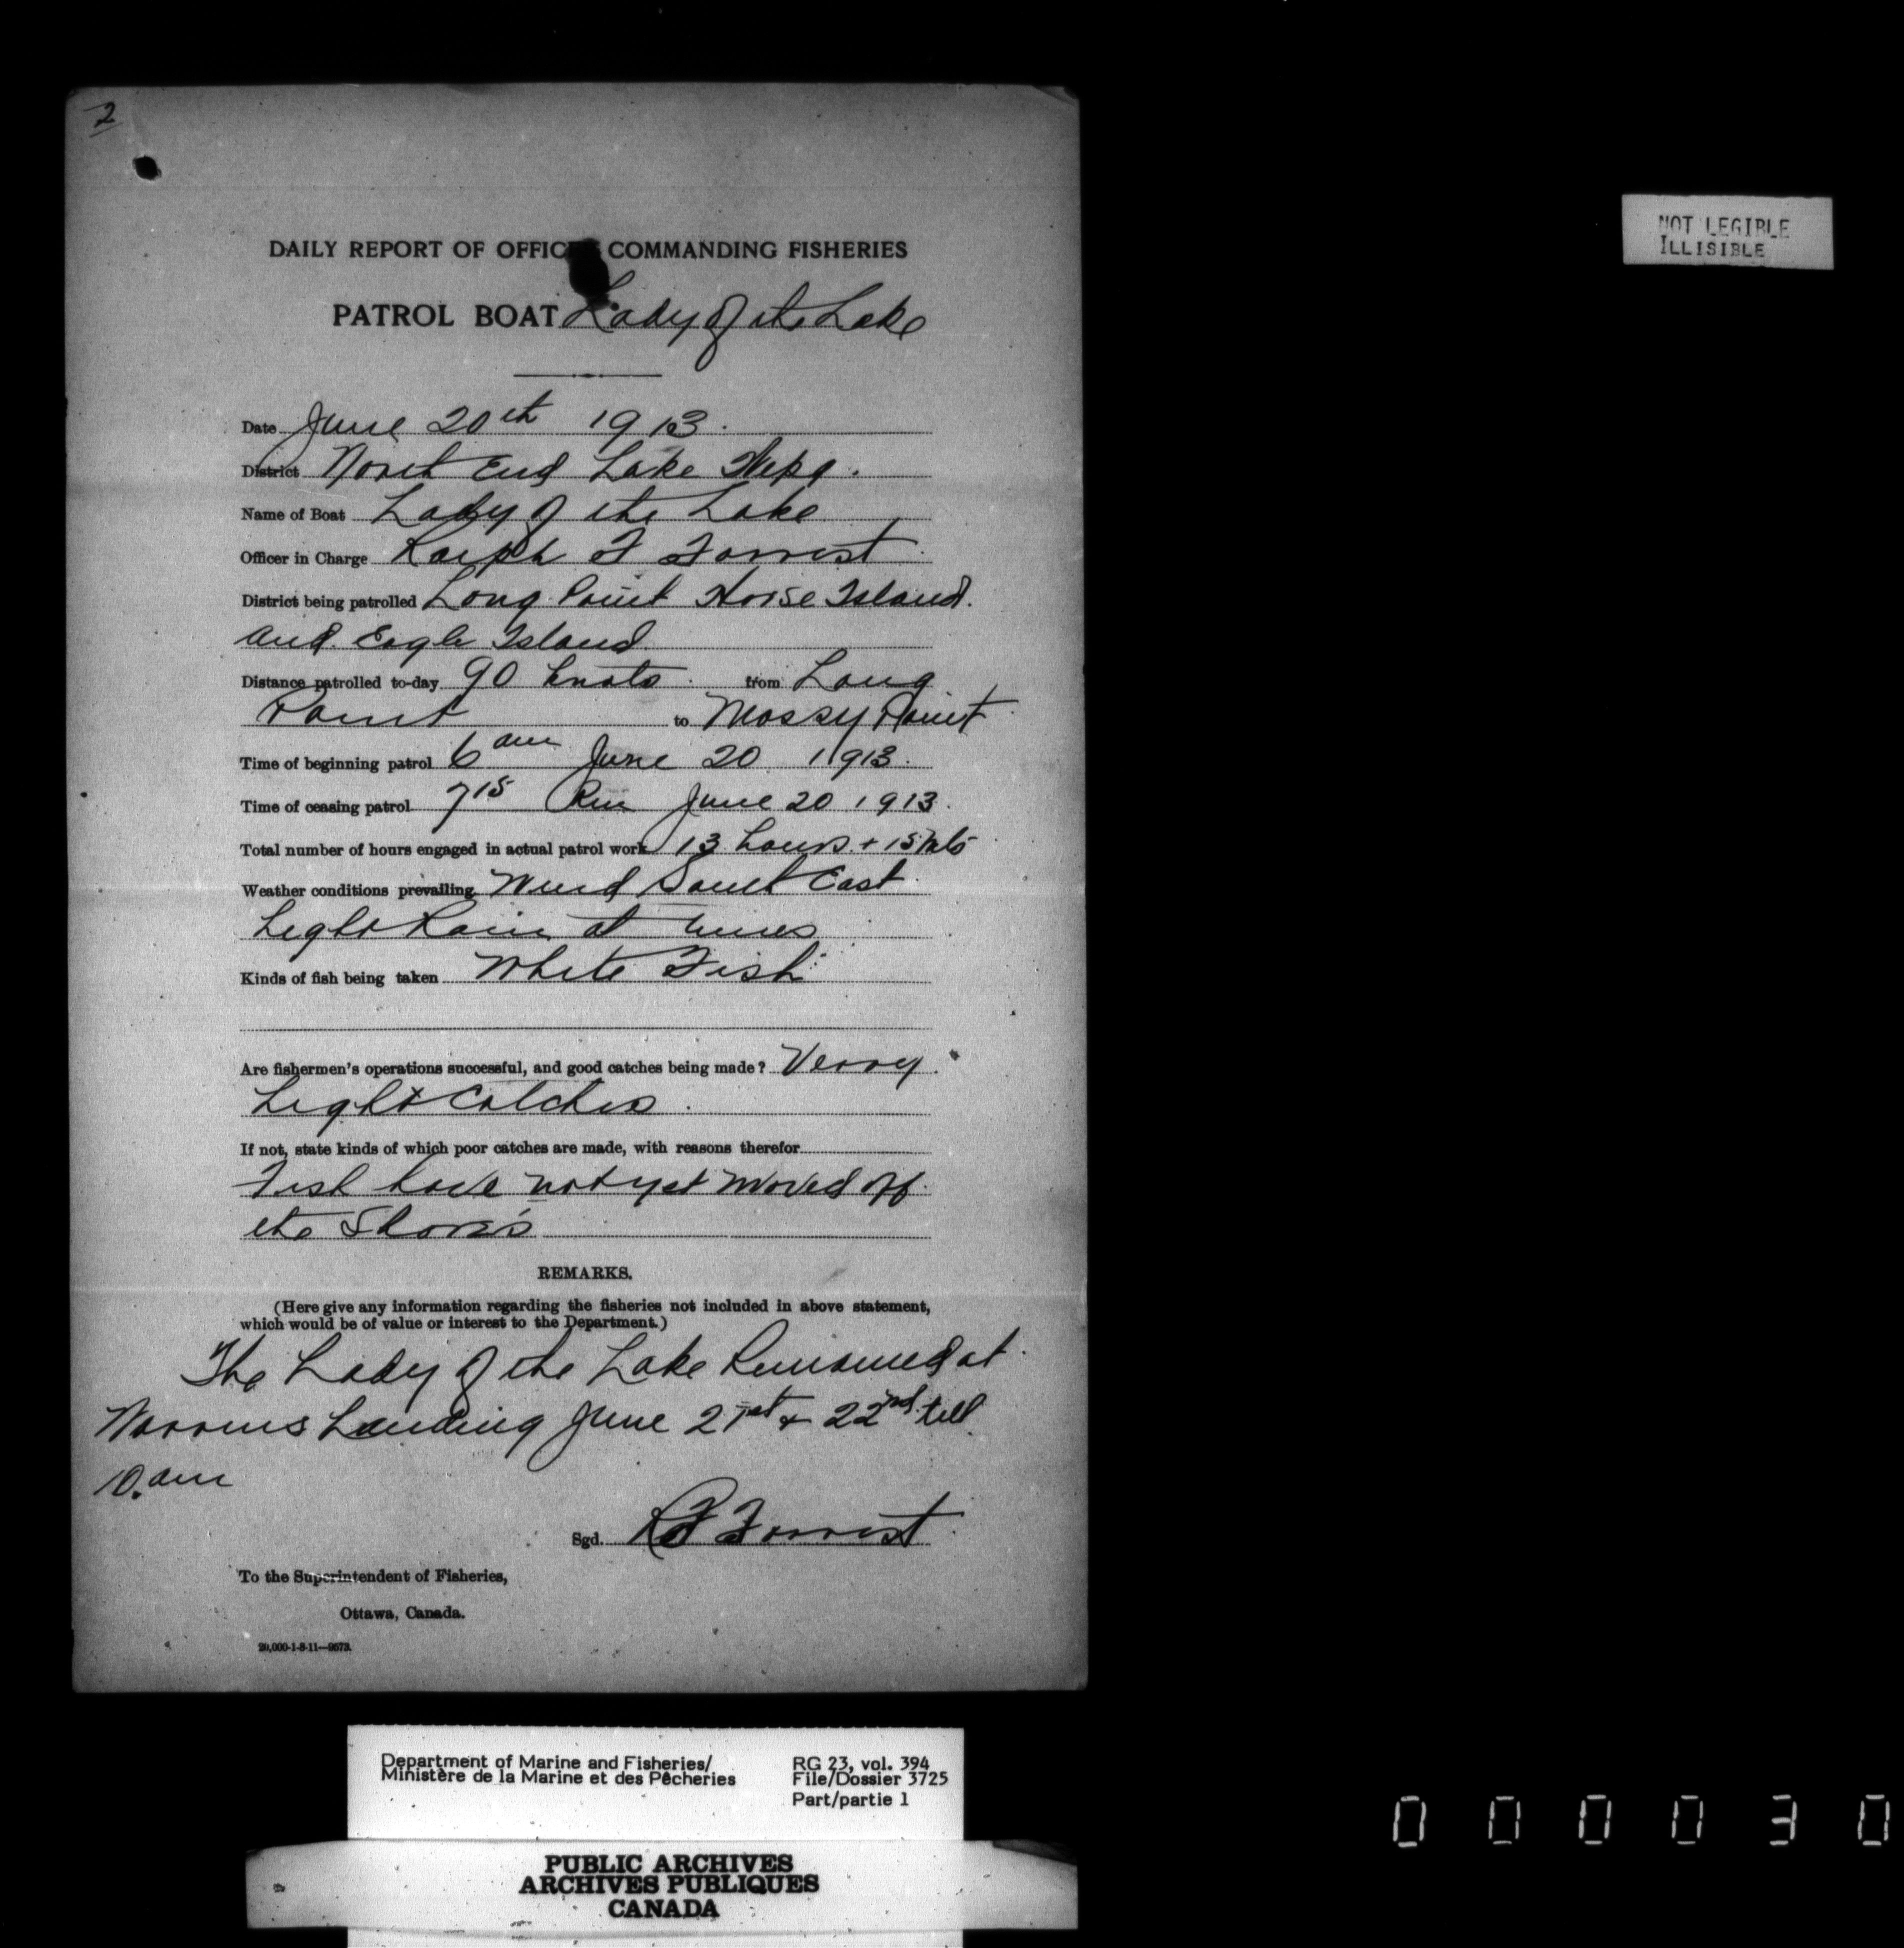 2
DAILY REPORT OF OFFICER COMMANDING FISHERIES
PATROL BOAT Lady of the Lake
Date June 20th 1913.
District North End Lake Wpg.
Name of Boat Lady of the Lake
Officer in Charge Ralph F Forrest
District being patrolled Long Point Horse Island.
and. Eagle Island
Distance patrolled to-day 90 knots. from Long
Point to Mossy Point
Time of beginning patrol 6 am June 20 1913.
Time of ceasing patrol 7 15 Pm June 20 1913.
Total number of hours engaged in actual patrol work 13 hours + 15 Mts
Weather conditions prevailing Wind South East
Light Rain at times
Kinds of fish being taken White Fish
Are fishermen's operations successful, and good catches being made? Verry.
Light Catches.
If not, state kinds of which poor catches are made, with reasons therefor
Fish have not yet moved off
the Shores
REMARKS.
(Here give any information regarding the fisheries not included in above statement,
which would be of value or interest to the Department.)
The Lady of the Lake Remained at
Warrens Landing June 21st + 22nd till
10.am
Sgd. R F Forrest
To the Superintendent of Fisheries,
Ottawa, Canada.
20,000-1-8-11—9573.
NOT LEGIBLE
ILLISIBLE
Department of Marine and Fisheries/ RG 23, vol. 394
Ministère de la Marine et des Pêcheries File/Dossier 3725
Part/partie 1
PUBLIC ARCHIVES
ARCHIVES PUBLIQUES
CANADA
0 0 0 0 3 0